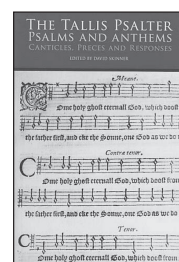 THE TALLIS PSALTER
PSALMS AND ANTHEMS
CANTICLES, PRECES AND RESPONSES
EDITED BY DAVID SKINNER
Meane.
Ome holy ghost eternall God, which doost
the father first, and eke the Sonne, one God as we do
Contra tenor.
Ome holy ghost eternall God, which doost from
the father first, and eke the Sonne, one God as we do
Tenor.
Ome holy ghost eternall God, which doost from